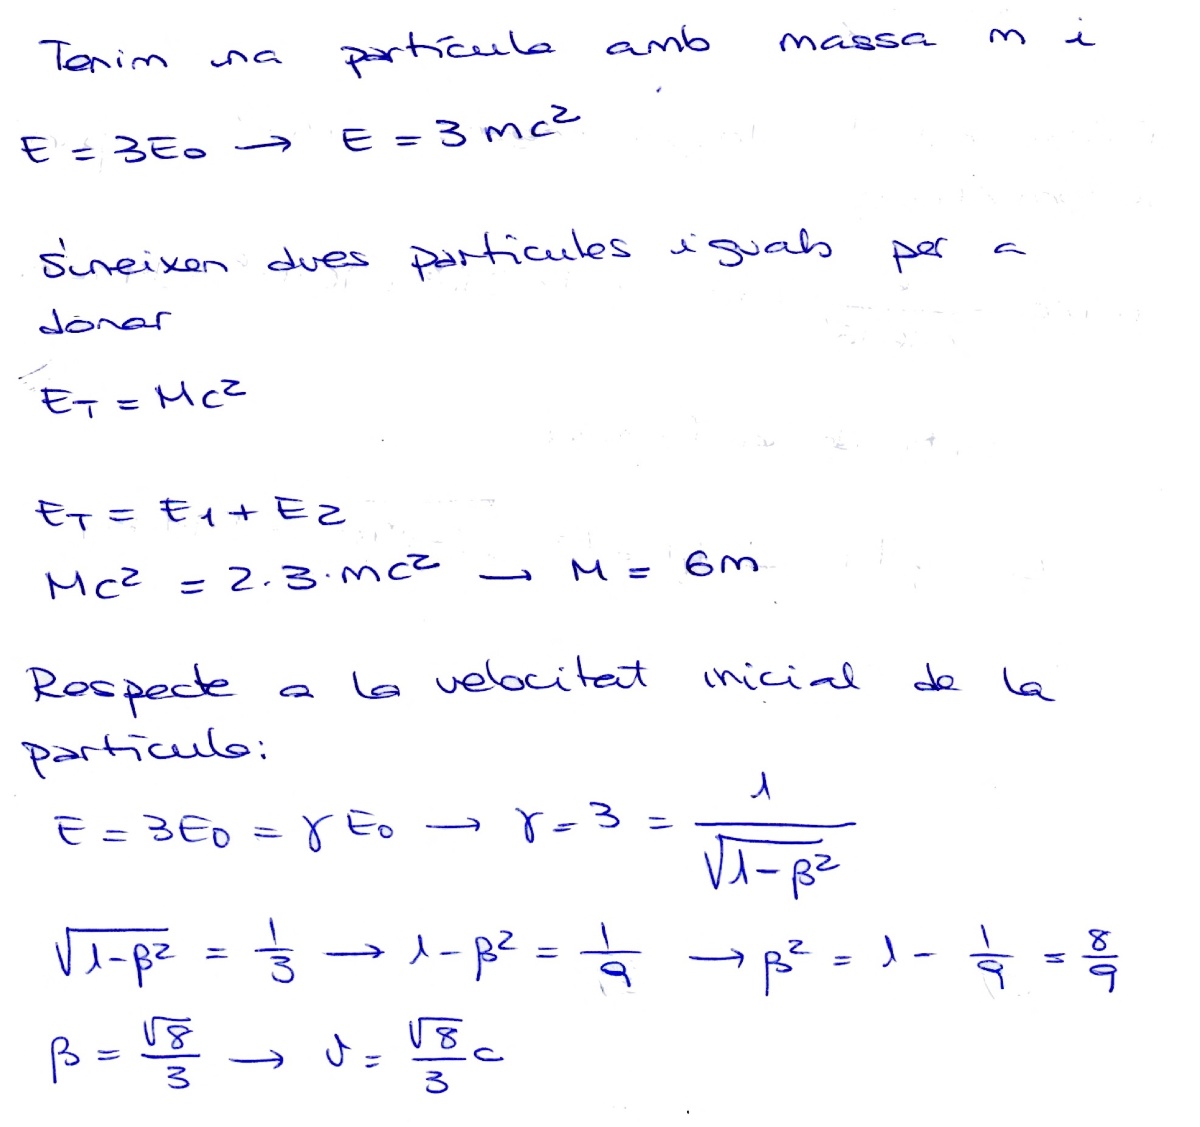 Tenim una partícula amb massa m i
E = 3E₀ → E = 3 mc²
S'uneixen dues partícules iguals per a
donar
E_T = Mc²
E_T = E₁ + E₂
Mc² = 2·3·mc² → M = 6m
Respecte a la velocitat inicial de la
partícula:
E = 3E₀ = γE₀ → γ = 3 = 1/√(1-β²)
√(1-β²) = 1/3 → 1-β² = 1/9 → β² = 1 - 1/9 = 8/9
β = √8/3 → v = √8/3 c